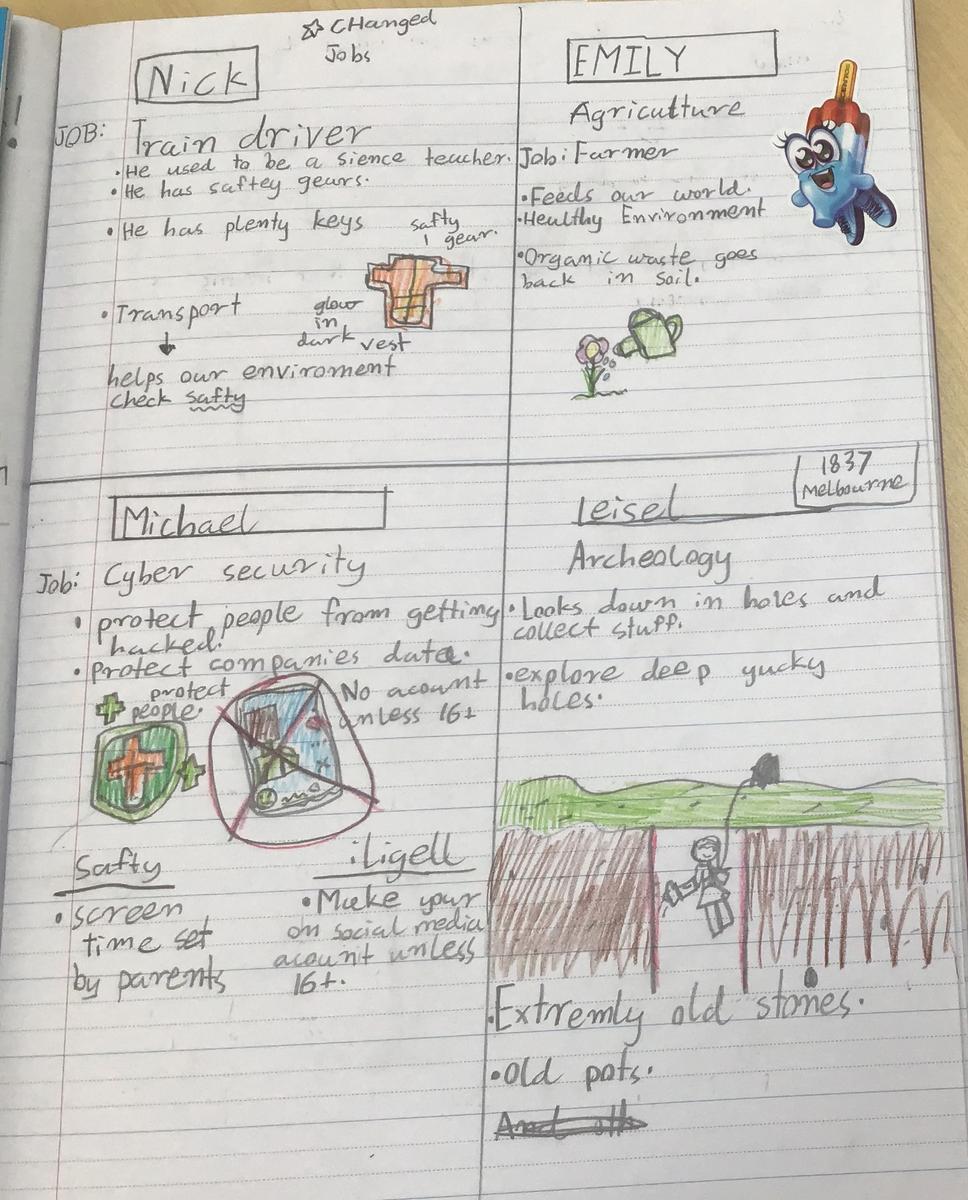 ☆ CHanged
Jobs
Nick
JOB: Train driver
• He used to be a sience teacher.
• He has saftey gears.
• He has plenty keys
safty
gear.
glow
in
dark vest
• Transport
↓
helps our enviroment
check safty
EMILY
Agriculture
Job: Farmer
• Feeds our world.
• Healthy Environment
• Organic waste goes
back in soil.
Michael
Job: Cyber security
• protect people from getting
hacked.
• Protect companies data.
protect
people.
No acount
unless 16+
Safty
• screen
time set
by parents
iligell
• Make your
on social media
acount unless
16+.
1837
Melbourne
Leisel
Archeology
• Looks down in holes and
collect stuff.
• explore deep yucky
holes.
• Extremly old stones.
• Old pots.